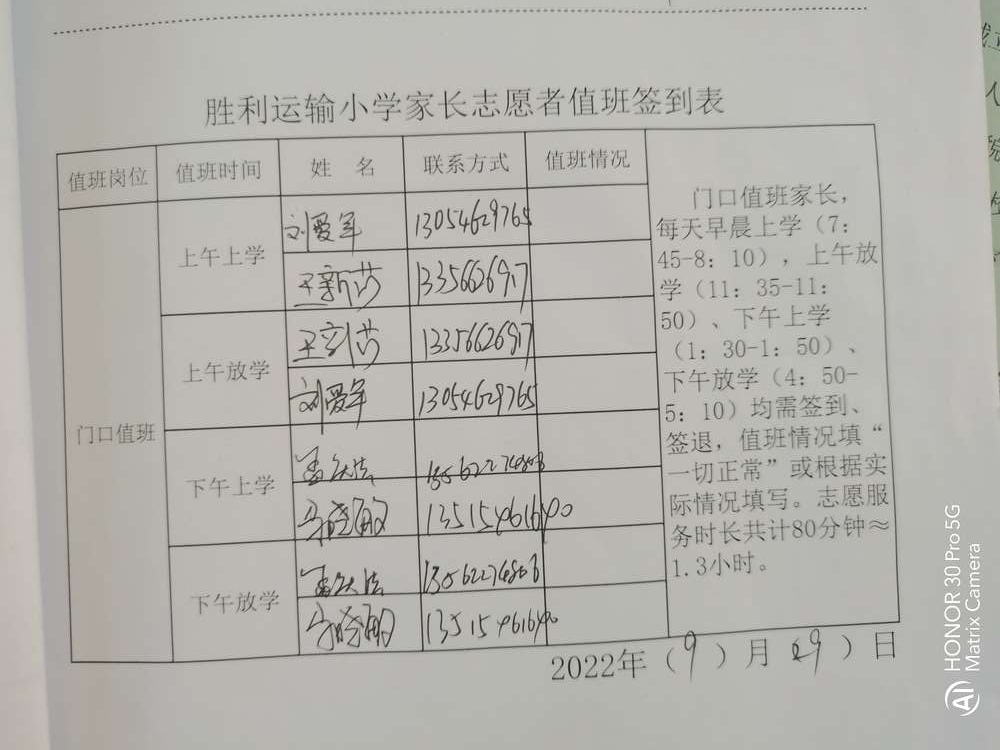 胜利运输小学家长志愿者值班签到表
值班岗位 值班时间 姓 名 联系方式 值班情况
门口值班
上午上学 刘爱军 13054629765
王新莎 1335662697
上午放学 王新莎 1335662697
刘爱军 13054629765
下午上学 13562274808
13515461640
下午放学 13562274808
13515461640
门口值班家长，
每天早晨上学（7：
45-8：10），上午放
学（11：35-11：
50）、下午上学
（1：30-1：50）、
下午放学（4：50-
5：10）均需签到、
签退，值班情况填“
一切正常”或根据实
际情况填写。志愿服
务时长共计80分钟≈
1.3小时。
2022年（9）月（29）日
HONOR 30 Pro 5G
Matrix Camera
AI